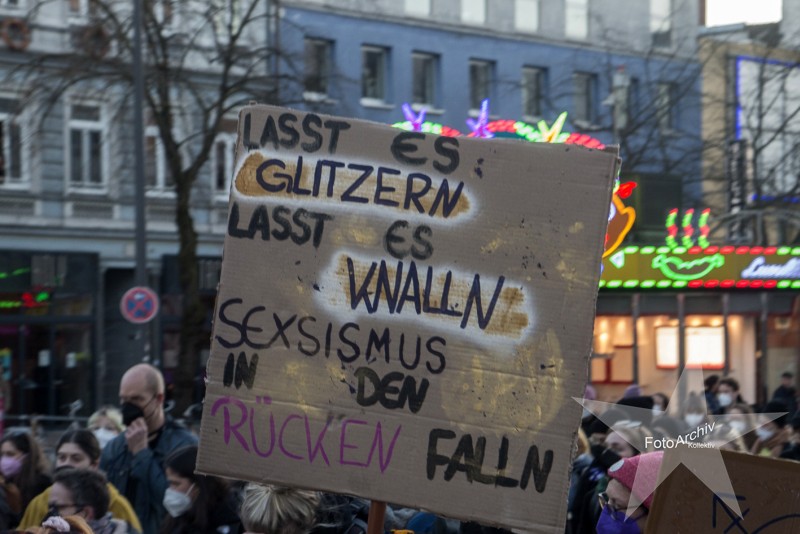 LASST ES:
GLITZERN
LASST ES
KNALLN
SEXSISMUS
IN DEN
RÜCKEN FALLN
FotoArchiv
Kollektiv